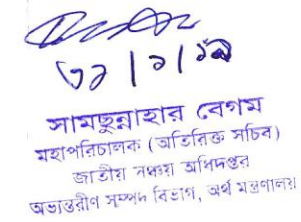 ৩১|১|১৯
সামছুন্নাহার বেগম
মহাপরিচালক (অতিরিক্ত সচিব)
জাতীয় সঞ্চয় অধিদপ্তর
অভ্যন্তরীণ সম্পদ বিভাগ, অর্থ মন্ত্রণালয়।